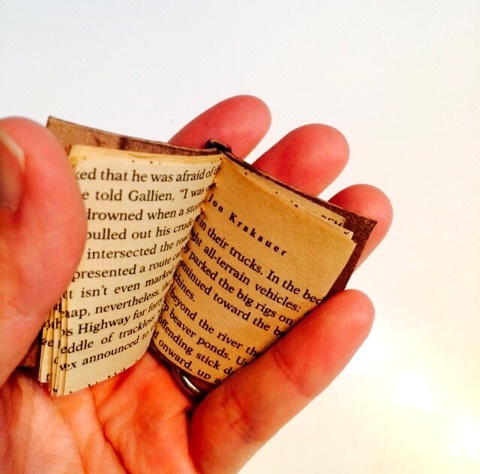 ked that he was afraid of
e told Gallien, "I was
drowned when a sto
pulled out his crude
intersected the ro
presented a route
t isn't even marke
ap, nevertheless, th
s Highway for for
eddle of trackless
ex announced to
Jon Krakauer
in their trucks. In the bed
ght all-terrain vehicles:
y parked the big rigs on
ntinued toward the b
mines.
beyond the river th
beaver ponds. U
ffending stick d
d onward, up